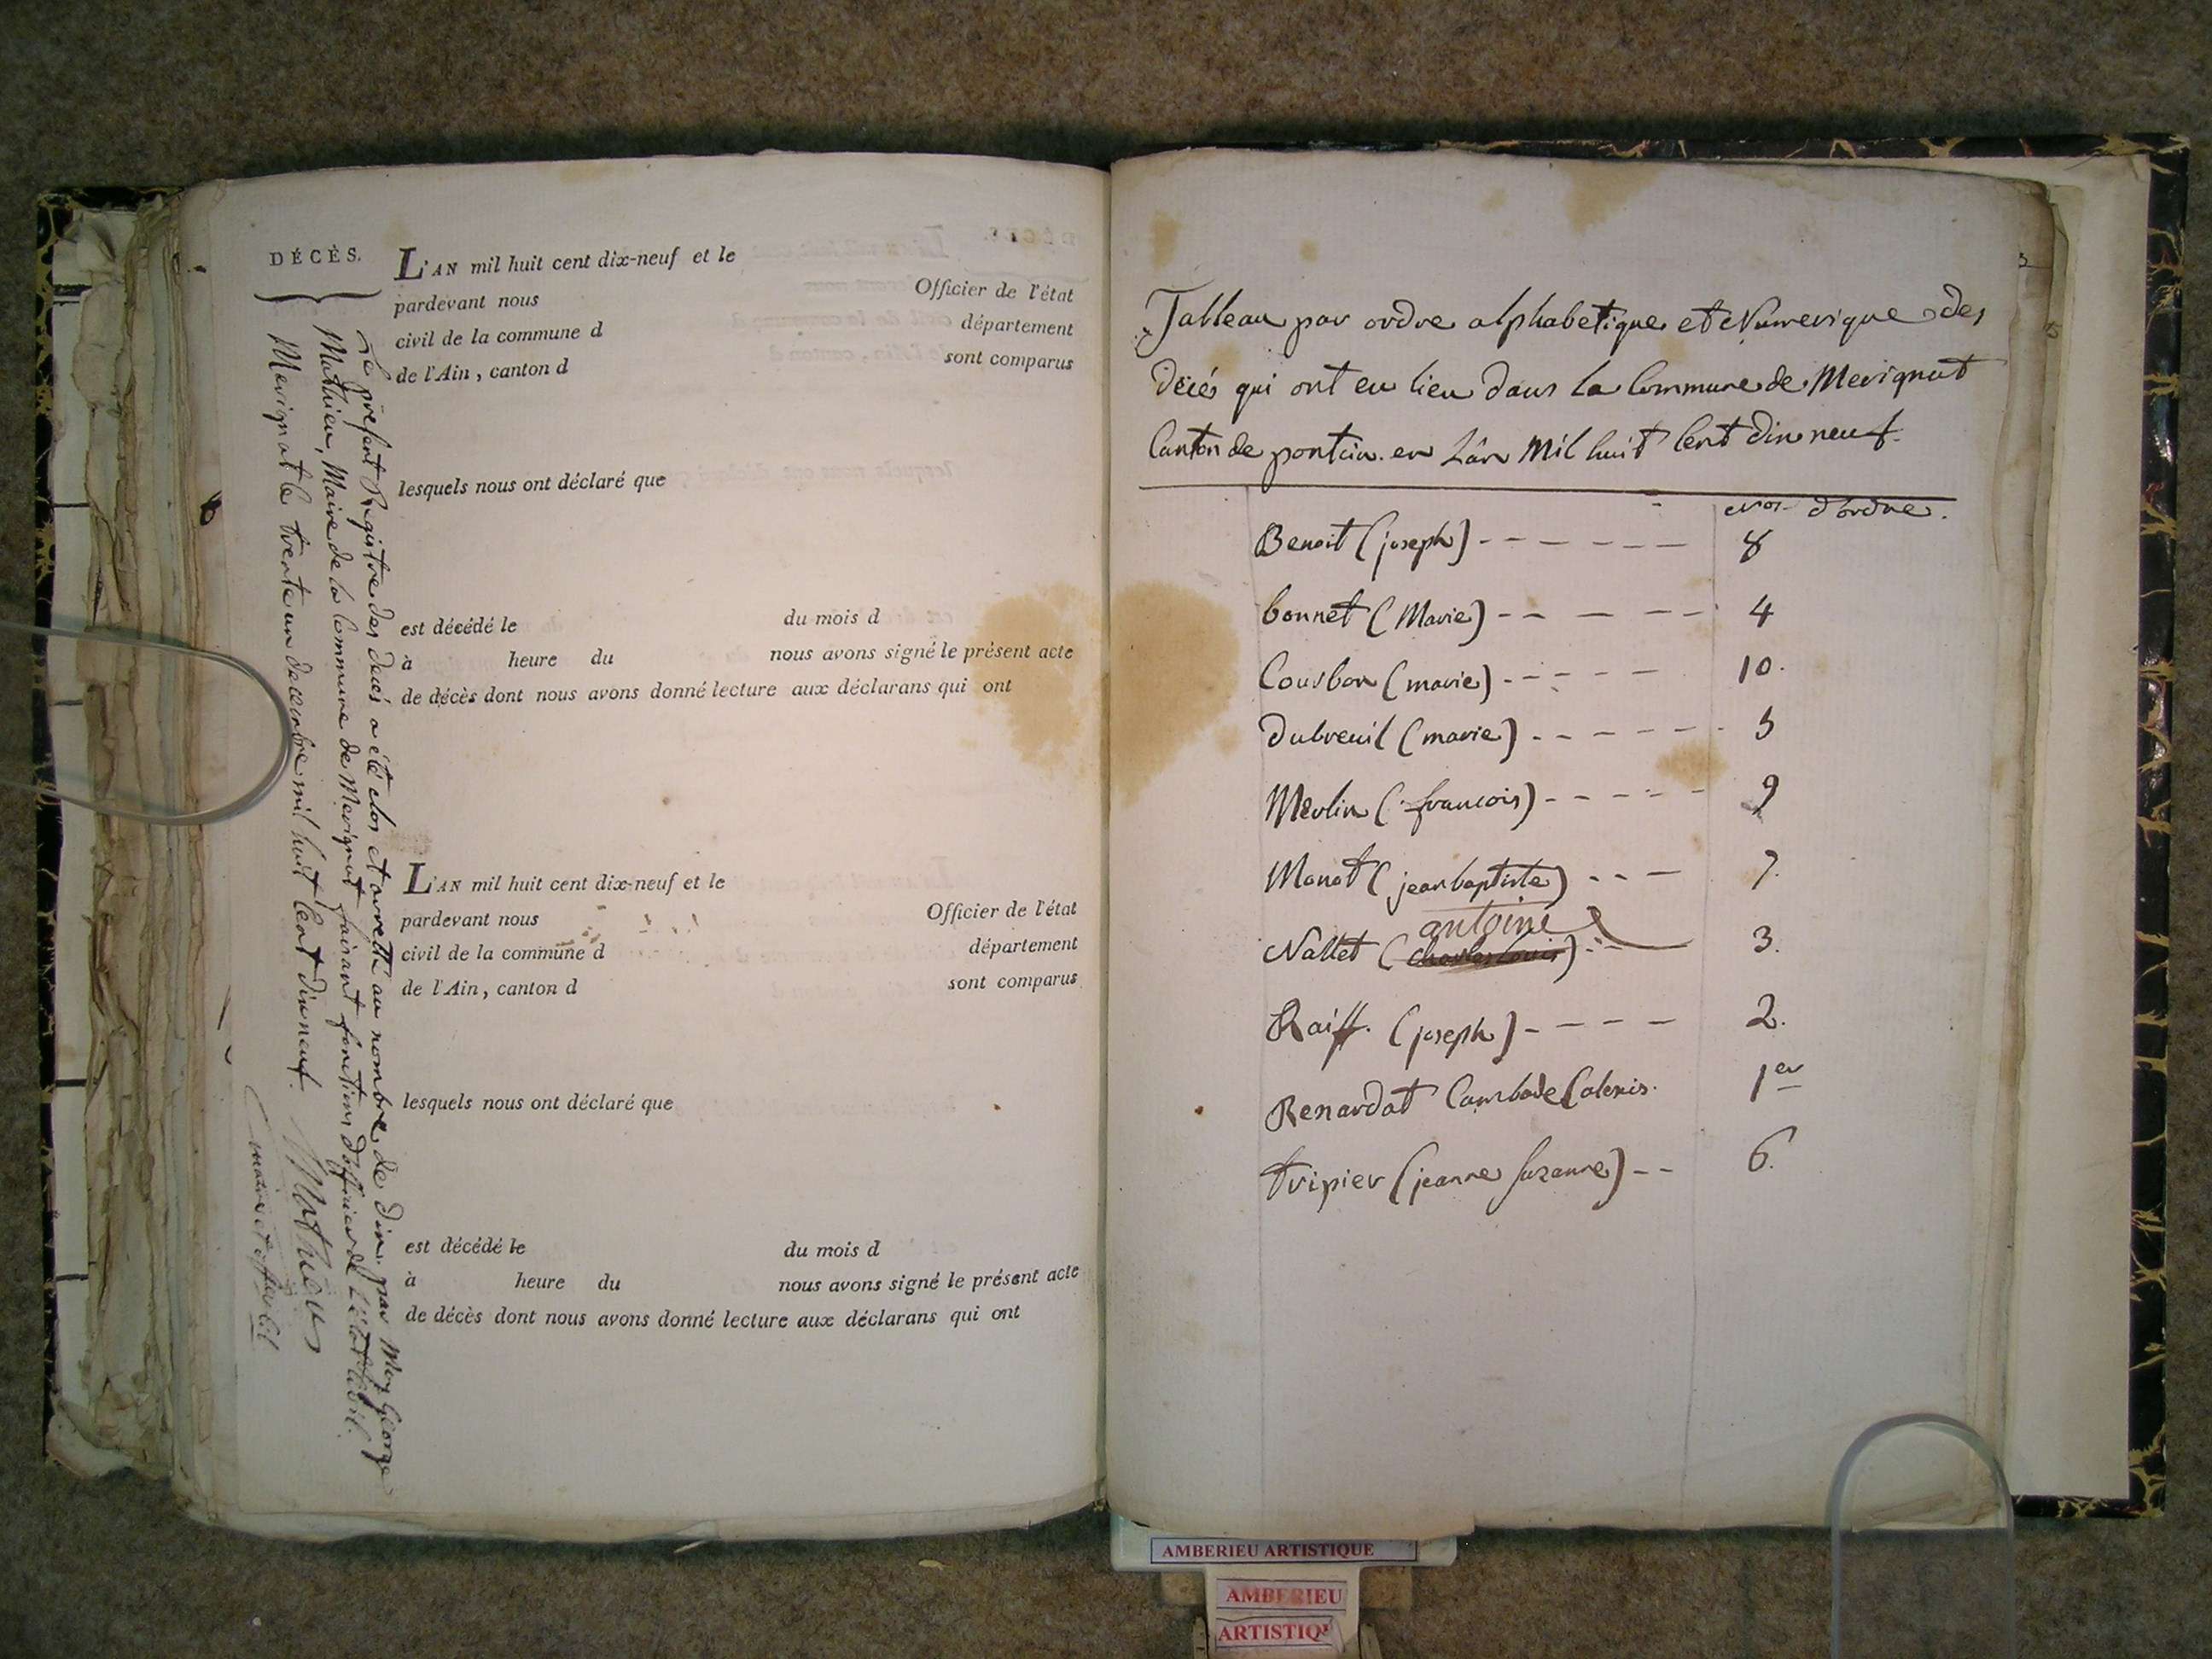 DÉCÈS.
L'AN mil huit cent dix-neuf et le
pardevant nous Officier de l'état
civil de la commune d département
de l'Ain, canton d sont comparus
lesquels nous ont déclaré que
est décédé le du mois d
à heure du nous avons signé le présent acte
de décès dont nous avons donné lecture aux déclarans qui ont
L'AN mil huit cent dix-neuf et le
pardevant nous Officier de l'état
civil de la commune d département
de l'Ain, canton d sont comparus
lesquels nous ont déclaré que
est décédé le du mois d
à heure du nous avons signé le présent acte
de décès dont nous avons donné lecture aux déclarans qui ont
Le présent Registre des decés a été clos et arretté au nombre de dix par Moy George
Mathieu, Maire de la Commune de Merignat faisant fonctions d'officier de L'état Civil.
Merignat le trente un decembre mil huit Cent dix neuf.
Mathieu
maire et
Tableau par ordre alphabetique et Numerique des
Décés qui ont eu lieu dans la Commune de Merignat
Canton de poncin en L'an Mil huit Cent dix neuf.
Nos. d'ordre.
Benoit (joseph) - - - - - - 8
bonnet (Marie) - - - - - 4
Courbon (marie) - - - - - 10.
Dubreuil (marie) - - - - - - 5
Merlin (francois) - - - - - 9
Monat (jean baptiste) - - - 7.
antoine
Nallet (charles louis) - - 3.
Raiff. (joseph) - - - - 2.
Renardat 1er
tripier (jeanne suzanne) - - 6.
AMBERIEU ARTISTIQUE
AMBERIEU
ARTISTIQU